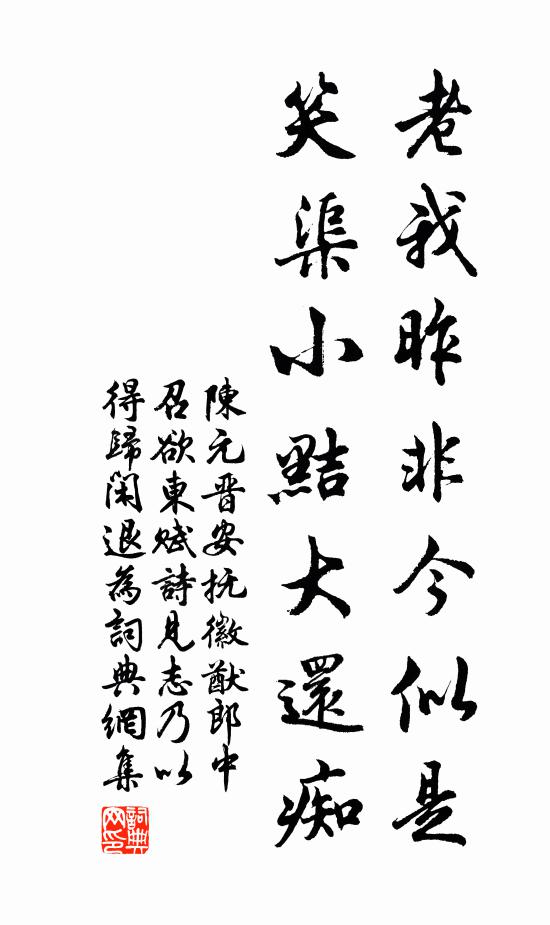 老我昨非今似是
笑渠小黠大還痴
陳元晋安抚徽猷郎中
召欲東賦詩見志乃以
得歸閑退為詞典網集
詞典網印